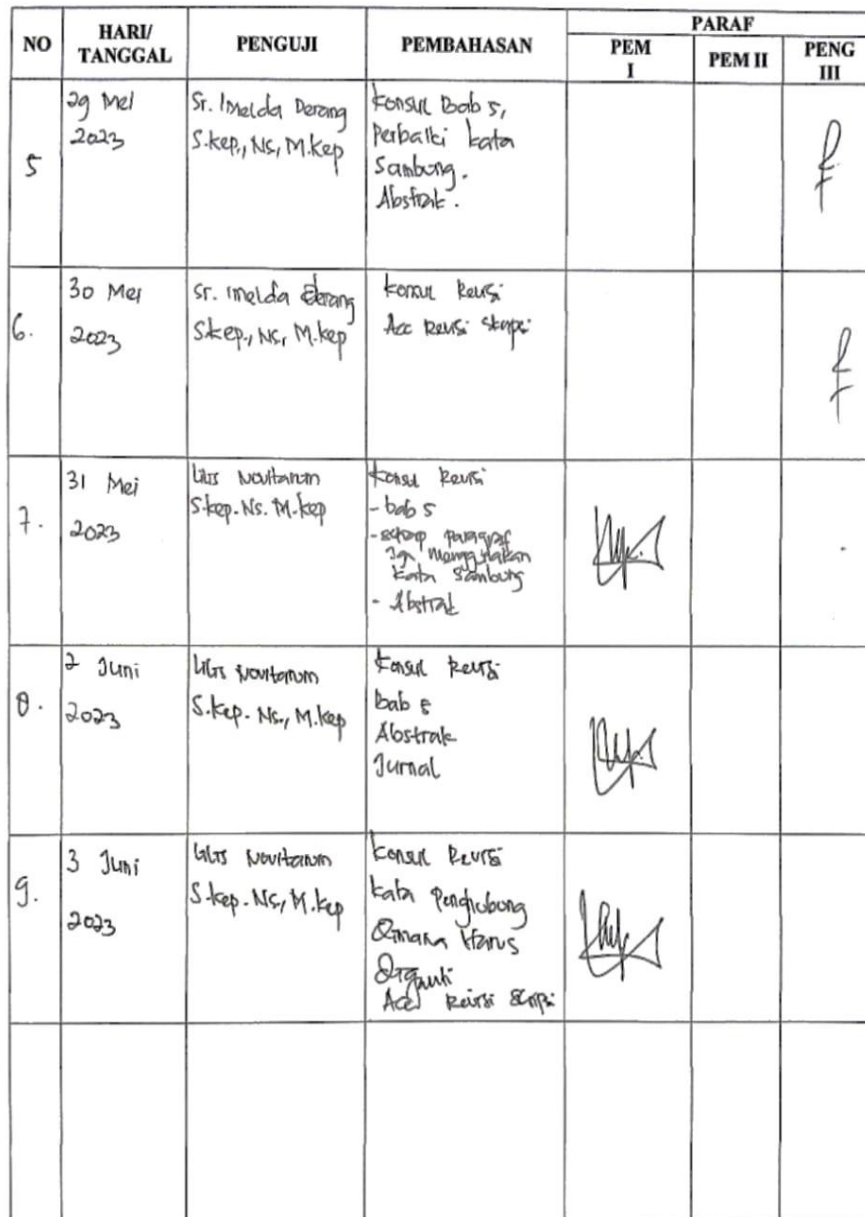 NO HARI/ TANGGAL PENGUJI PEMBAHASAN PARAF
PEM I PEM II PENG III
5
29 Mei
2023
Sr. Imelda Derang
S.kep., Ns, M.kep
Konsul Bab 5,
Perbaiki kata
Sambung.
Abstrak.
6.
30 Mei
2023
Sr. Imelda Derang
S.kep., Ns, M.kep
Konsul Revisi
Acc Revisi Skripsi
7.
31 Mei
2023
Lilis Novitarum
S.kep. Ns. M.kep
Konsul Revisi
- bab 5
- setiap paragraf
menggunakan
kata sambung
- Abstrak
8.
2 Juni
2023
Lilis Novitarum
S.kep. Ns., M.kep
Konsul Revisi
Bab 5
Abstrak
Jurnal
9.
3 Juni
2023
Lilis Novitarum
S.kep. Ns, M.kep
Konsul Revisi
kata Penghubung
Dimana Harus
Diganti
Acc Revisi Skripsi